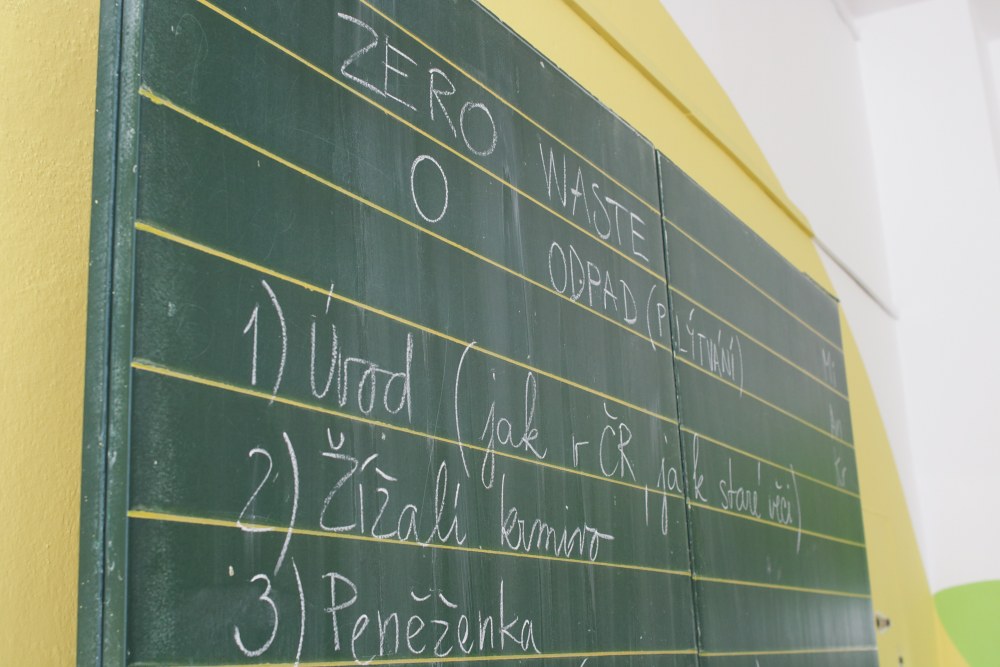 ZERO WASTE
O ODPAD (PLÝTVÁNÍ)
1) Úvod (jak v ČR, jak staré věci)
2) Žížalí krmivo
3) Peněženka